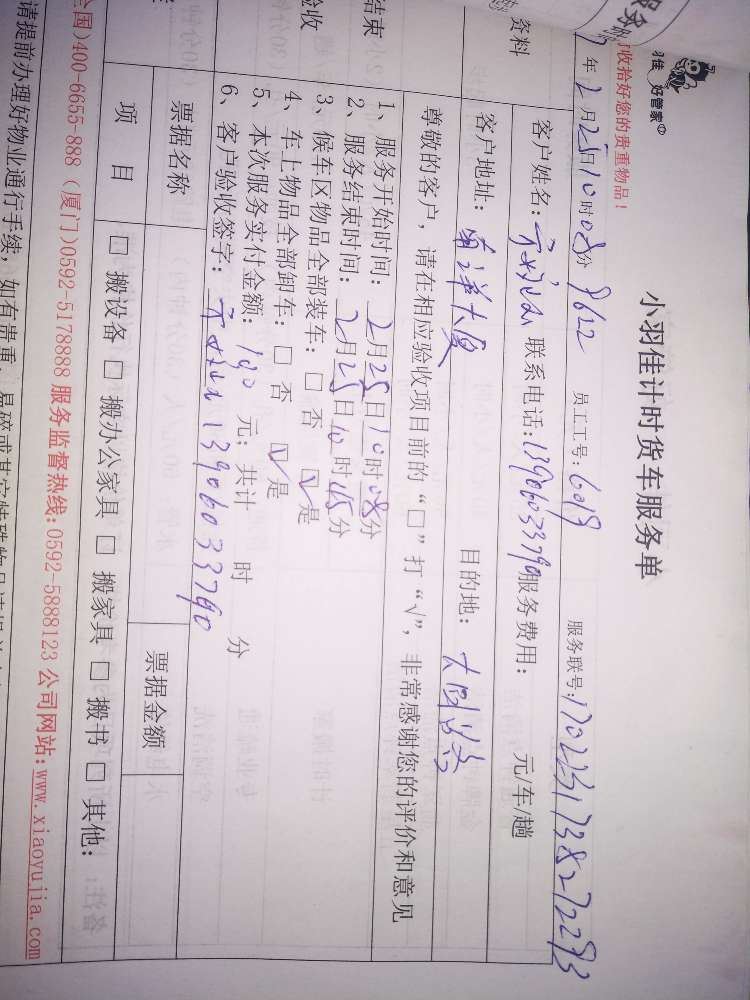 服务
羽佳 好管家
收拾好您的贵重物品！
小羽佳计时货车服务单
年2月25日10时08分 员工工号：6019 服务联号：
资料
客户姓名： 联系电话：13906033790 服务费用： 元/车/趟
客户地址：南洋大厦 目的地：
尊敬的客户，请在相应验收项目前的“□”打“√”，非常感谢您的评价和意见
结束
验收
1、服务开始时间：2月25日10时08分
2、服务结束时间：2月25日10时45分
3、候车区物品全部装车：□否 ☑是
4、车上物品全部卸车：□否 ☑是
5、本次服务实付金额：190元；共计 时 分
6、客户验收签字： 13906033790
票据名称 票据金额
项 目 □搬设备 □搬办公家具 □搬家具 □搬书 □其他：
全国)400-6655-888（厦门)0592-5178888 服务监督热线:0592-5888123 公司网站:www.xiaoyujia.com
请提前办理好物业通行手续，如有贵重、易碎或其它特殊物品请提前